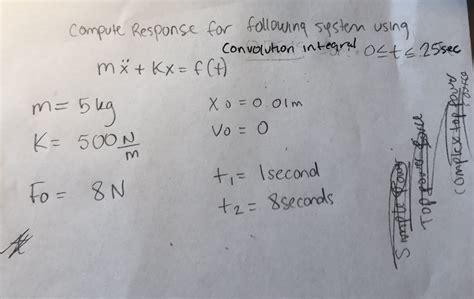 Compute Response for following system using
Convolution integral 0≤t≤25sec
mẍ + Kx = f(t)
m = 5kg
K = 500 N/m
F0 = 8N
X0 = 0.01m
V0 = 0
t1 = 1second
t2 = 8seconds